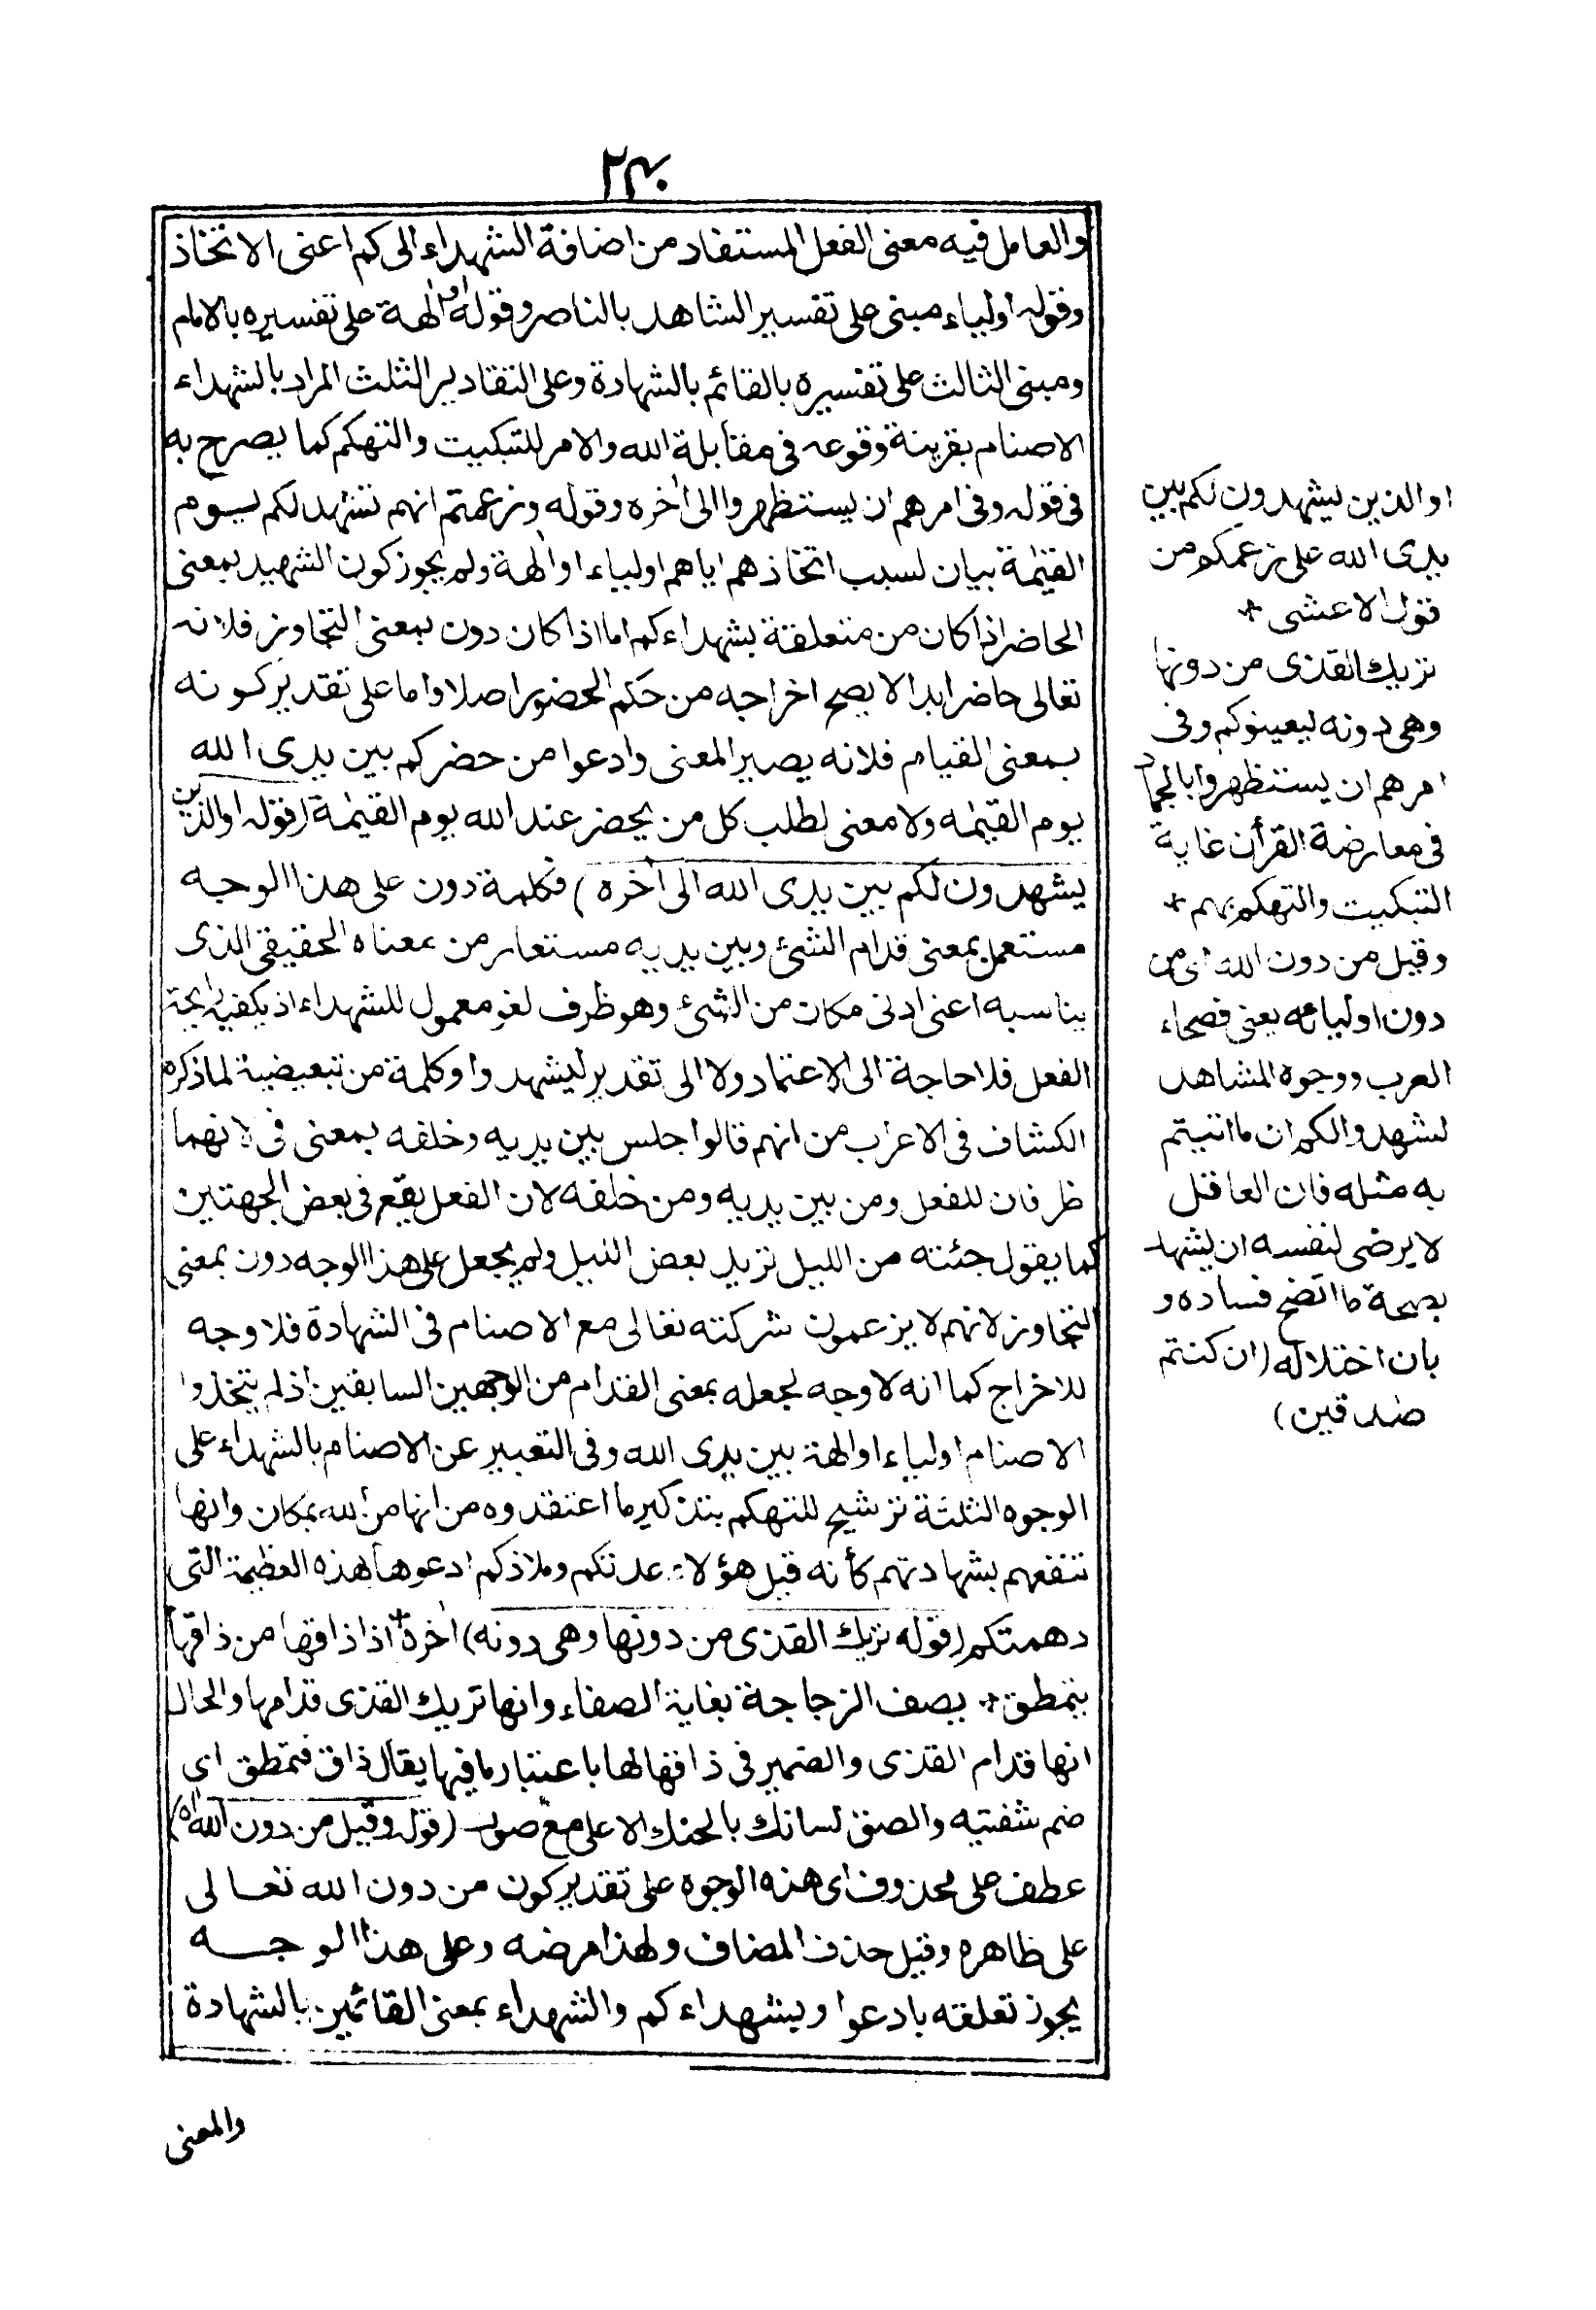 والعامل فيه معنى الفعل المستفاد من اضافة الشهداء الى كم اعنى الاتخاذ
وقوله اولياء مبنى على تفسير الشاهد بالناصر وقوله او الهة على تفسيره بالامام
ومبنى الثالث على تفسيره بالقائم بالشهادة وعلى التقادير الثلث المراد بالشهداء
الاصنام بقرينة وقوعه فى مقابلة الله والامر للتبكيت والتهكم كما يصرح به
فى قوله وفى امرهم ان يستظهروا الى أخره وقوله وزعمتم انهم تشهد لكم يوم
القيٰمة بيان لسبب اتخاذهم اياهم اولياء او الهة ولم يجوز كون الشهيد بمعنى
الحاضر اذا كان من متعلقة بشهداءكم اما اذا كان دون بمعنى التجاوز فلانه
تعالى حاضر ابدا لا يصح اخراجه من حكم الحضور اصلا واما على تقدير كونه
بمعنى القيام فلانه يصير المعنى وادعوا من حضركم بين يدى الله
يوم القيٰمه ولا معنى لطلب كل من يحضر عند الله يوم القيٰمة (قوله او الذين
يشهدون لكم بين يدى الله الى أخره) فكلمة دون على هذا الوجه
مستعمل بمعنى قدام الشئ وبين يديه مستعار من معناه الحقيقى الذى
يناسبه اعنى ادنى مكان من الشئ وهو ظرف لغو معمول للشهداء اذ يكفيه رايحة
الفعل فلا حاجة الى الاعتماد ولا الى تقدير ليشهدوا وكلمة من تبعيضية لما ذكره
الكشاف فى الاعراب من انهم قالوا جلس بين يديه وخلفه بمعنى فى لانهما
ظرفان للفعل ومن بين يديه ومن خلفه لان الفعل يقع فى بعض الجهتين
كما يقول جئته من الليل تريد بعض الليل ولم يجعل على هذا الوجه دون بمعنى
التجاوز لانهم لا يزعمون شركته تعالى مع الاصنام فى الشهادة فلا وجه
للاخراج كما انه لا وجه لجعله بمعنى القدام من الوجهين السابقين اذ لم يتخذوا
الاصنام اولياء او الهة بين يدى الله وفى التعبير عن الاصنام بالشهداء على
الوجوه الثلثة ترشيح للتهكم بتذكير ما اعتقدوه من انها من الله بمكان وانها
تنفعهم بشهادتهم كأنه قيل هؤلاء عدتكم وملاذكم ادعوها لهذه العظيمة التى
دهمتكم (قوله تريك القذى من دونها وهى دونه) أخره * اذا ذاقها من ذاقها
يتمطق * يصف الزجاجة بغاية الصفاء وانها تريك القذى قدامها والحال
انها قدام القذى والضمير فى ذاقها لها باعتبار ما فيها يقال ذاق فتمطق اى
ضم شفتيه والصق لسانك بالحنك الاعلى مع صوت (قوله وقيل من دون الله اه)
عطف على محذوف اى هذه الوجوه على تقدير كون من دون الله تعالى
على ظاهره وقيل حذف المضاف ولهذا مرضه وعلى هذا الوجه
يجوز تعلقه بادعوا وبشهداءكم والشهداء بمعنى القائمين بالشهادة
والمعنى
او الذين ليشهدون لكم بين
يدى الله على زعمكم من
قول الاعشى *
تريك القذى من دونها
وهى دونه ليعينوكم وفى
امرهم ان يستظهروا بالجماد
فى معارضة القرأن غاية
التبكيت والتهكم بهم *
وقيل من دون الله اى من
دون اوليائه يعنى فصحاء
العرب ووجوه المشاهد
ليشهدوا لكم ان ما اتيتم
به مثله فان العاقل
لا يرضى لنفسه ان يشهد
بصحة ما اتضح فساده و
بان اختلاله (ان كنتم
صٰدقين)